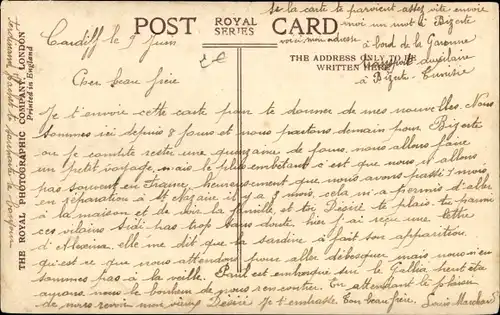 Si la carte te parvient assez vite envoie
moi un mot à Bizerte
voici mon adresse
à bord de la Garonne
Transport auxiliaire
à Bizerte - Tunisie
POST CARD
ROYAL
SERIES
THE ADDRESS ONLY TO BE
WRITTEN HERE
THE ROYAL PHOTOGRAPHIC COMPANY, LONDON
Printed in England
Cardiff le 9 Juin
Cher beau frère
Je t'envoie cette carte pour te donner de mes nouvelles. Nous
sommes ici depuis 8 jours et nous partons demain pour Bizerte
ou je compte rester une quinzaine de jours, nous allons faire
un petit voyage, mais le plus embêtant c'est que nous n'allons
pas souvent en France, heureusement que nous avons passé 1 mois
en réparation à St Nazaire il y a 3 mois, cela m'a permis d'aller
à la maison et de voir la famille, et toi Désiré te plais-tu parmi
ces vilains Sidi pas trop sans doute, hier j'ai reçu une lettre
elle me dit que la sardine a fait son apparition.
qu'est-ce que nous attendons pour aller débarquer mais nous n'en
sommes pas à la veille. Paul est embarqué sur le peut être
aurons nous le bonheur de nous rencontrer. En attendant le plaisir
de nous revoir mon vieux Désiré Je t'embrasse. Ton beau frère. Louis